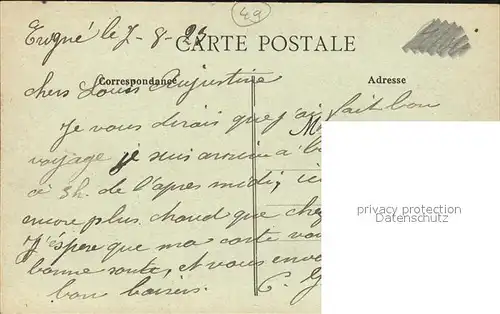 49
Erigné le 7-8-23
CARTE POSTALE
Correspondance
Adresse
chers Louis Augustine
Je vous dirais que j'ai fait bon
M
voyage je suis arrivée a
à 3h. de l'apres midi, ici
encore plus chaud que chez
J'éspere que ma carte vous
bonne santé, et vous envo
C. G
bons baisers.
privacy protection
Datenschutz